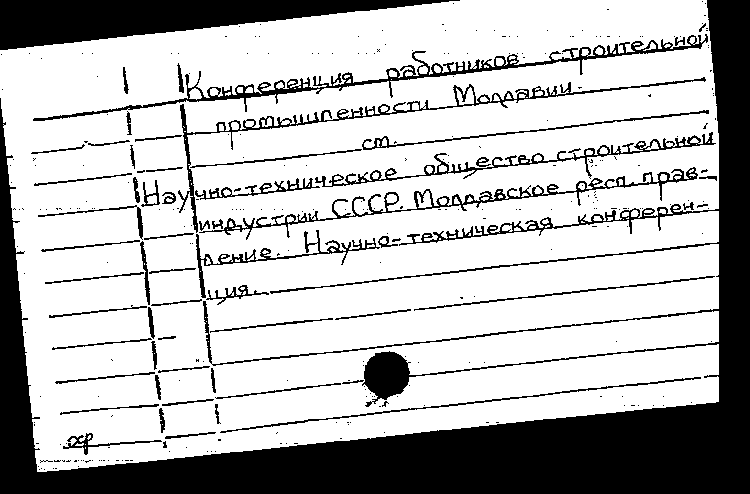 Конференция работников строительной
промышленности Молдавии.
см.
Научно-техническое общество строительной
индустрии СССР. Молдавское респ. прав-
ление. Научно-техническая конферен-
ция.